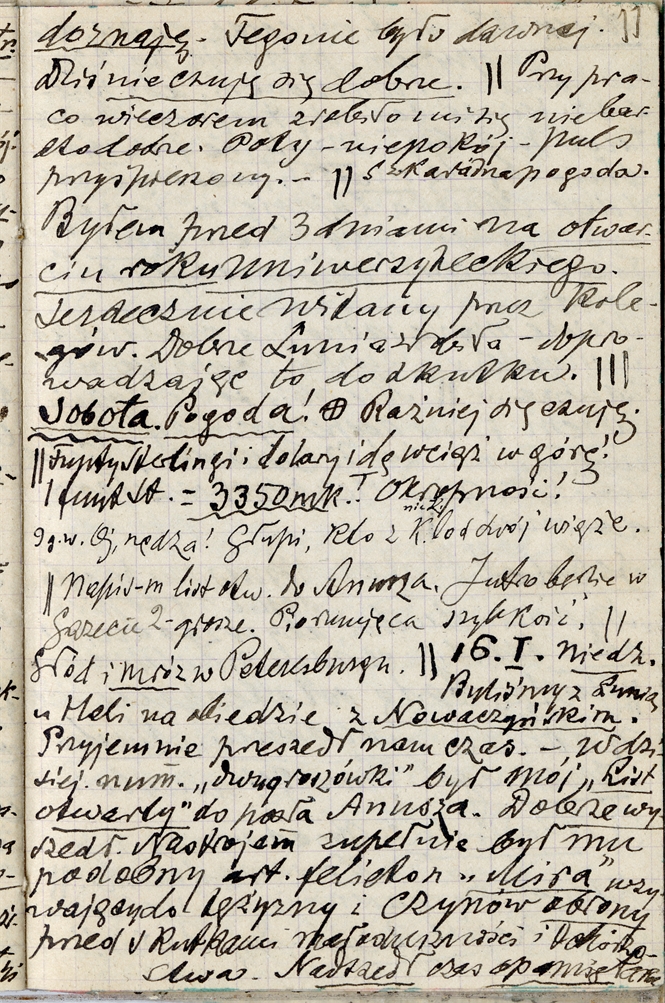 11
doznaję. Tego nie było dawniej.
Dziś nie czuję się dobrze. || Przy pra-
co wieczorem zrobiło mi się nie bar-
dzo dobrze. Poty - niepokój - puls
przyśpieszony. - || Szkaradna pogoda.
Byłem przed 3 dniami na otwar-
ciu roku Uniwersyteckiego.
Serdecznie witany przez kole-
gów. Dobrze Lunia zrobiła - dopro-
wadzając to do skutku. |||
Sobota. Pogoda! ⊕ Raźniej się czuję.
|| Funty sterlingi i dolary idą wciąż w górę!
1 funt st. = 3350 mk.! Okropność!
9 g.w. Oj, nędza! Głupi, kto z nią los swój wiąże.
|| Napis-m list otw. do Anusza. Jutro będzie w
Gazecie 2-grosze. Piorunująca szybkość. ||
Głód i mróz w Petersburgu. || 16. I. niedz.
Byliśmy z Lunią
u Heli na obiedzie z Nowaczyńskim.
Przyjemnie przeszedł nam czas. - W dzi-
siej. num. „dwugroszówki" był mój „List
otwarty" do posła Anusza. Dobrze wy-
szedł. Nastrojem zupełnie był mu
podobny art. felieton „Mira" wzy-
wający do tężyzny i czynów obrony
przed skutkami małoduszności i tchórzo-
stwa. Nadszedł czas